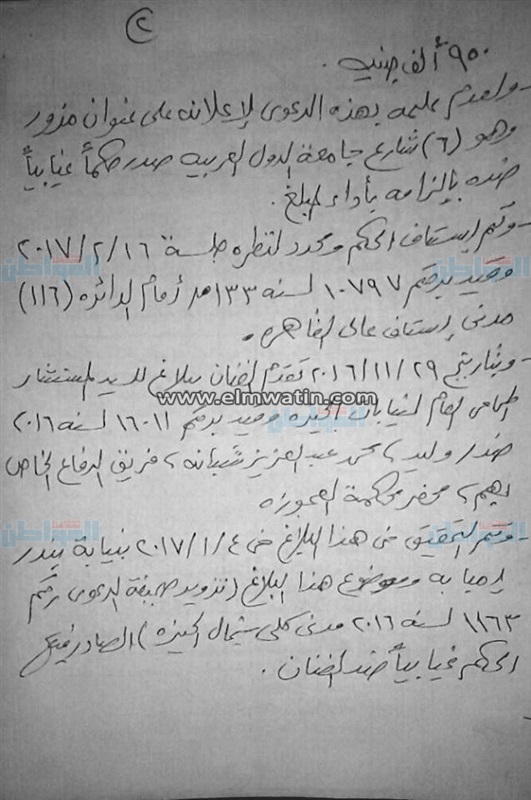 (٢)
٩٥٠ ألف جنيه .
- ولعدم علمه بهذه الدعوى لإعلانه على عنوان مزور
وهو (٦) شارع جامعة الدول العربيه صدر حكماً غيابياً
ضده بإلزامه بأداء المبلغ .
- وتم إستئناف الحكم ومحدد لنظره جلسة ١٦/٢/٢٠١٧
وقيد برقم ١٠٧٩٧ لسنه ١٣٣ هـ أمام الدائره (١١٦)
مدنى إستئناف عالى القاهره .
- وبتاريخ ٢٩/١١/٢٠١٦ تقدم الفنان ببلاغ للسيد المستشار
المحامى العام لنيابات الجيزه وقيد برقم ١٦٠١١ لسنه ٢٠١٦
www.elmwatin.com
ضد/ وليد ، محمد عبد العزيز شبانه ، فريق الدفاع الخاص
بهم ، محضر محكمة العجوزه
- وتم التحقيق فى هذا البلاغ فى ٤/١/٢٠١٧ بنيابة بندر
إمبابه وموضوع هذا البلاغ (تزوير صحيفة الدعوى رقم
١١٦٣ لسنه ٢٠١٦ مدنى كلى شمال الجيزه) الصادر فيها
الحكم غيابياً ضد الفنان .
المواطن